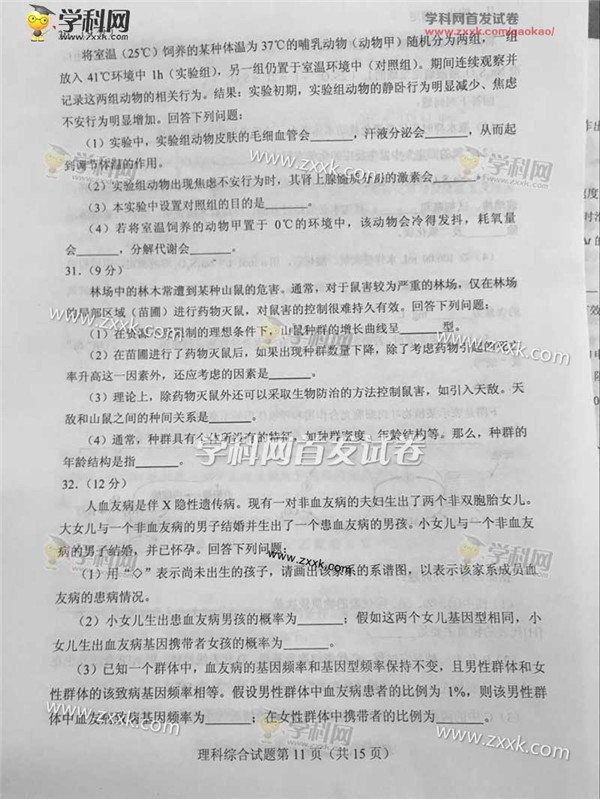 学科网
www.zxxk.com
学科网首发试卷
www.zxxk.com/gaokao/
将室温（25℃）饲养的某种体温为37℃的哺乳动物（动物甲）随机分为两组，一组
放入41℃环境中1h（实验组），另一组仍置于室温环境中（对照组）。期间连续观察并
记录这两组动物的相关行为。结果：实验初期，实验组动物的静卧行为明显减少、焦虑
不安行为明显增加。回答下列问题：
（1）实验中，实验组动物皮肤的毛细血管会______，汗液分泌会______，从而起
到调节体温的作用。
（2）实验组动物出现焦虑不安行为时，其肾上腺髓质分泌的激素会______。
（3）本实验中设置对照组的目的是______。
（4）若将室温饲养的动物甲置于0℃的环境中，该动物会冷得发抖，耗氧量
会______，分解代谢会______。
31.（9分）
林场中的林木常遭到某种山鼠的危害。通常，对于鼠害较为严重的林场，仅在林场
的局部区域（苗圃）进行药物灭鼠，对鼠害的控制很难持久有效。回答下列问题：
（1）在资源不受限制的理想条件下，山鼠种群的增长曲线呈______型。
（2）在苗圃进行了药物灭鼠后，如果出现种群数量下降，除了考虑药物引起的死亡
率升高这一因素外，还应考虑的因素是______。
（3）理论上，除药物灭鼠外还可以采取生物防治的方法控制鼠害，如引入天敌。天
敌和山鼠之间的种间关系是______。
（4）通常，种群具有个体所没有的特征，如种群密度、年龄结构等。那么，种群的
年龄结构是指______。
32.（12分）
人血友病是伴X隐性遗传病。现有一对非血友病的夫妇生出了两个非双胞胎女儿。
大女儿与一个非血友病的男子结婚并生出了一个患血友病的男孩。小女儿与一个非血友
病的男子结婚，并已怀孕。回答下列问题：
（1）用“◇”表示尚未出生的孩子，请画出该家系的系谱图，以表示该家系成员血
友病的患病情况。
（2）小女儿生出患血友病男孩的概率为______；假如这两个女儿基因型相同，小
女儿生出血友病基因携带者女孩的概率为______。
（3）已知一个群体中，血友病的基因频率和基因型频率保持不变，且男性群体和女
性群体的该致病基因频率相等。假设男性群体中血友病患者的比例为1%，则该男性群
体中血友病致病基因频率为______；在女性群体中携带者的比例为______。
理科综合试题第11页（共15页）